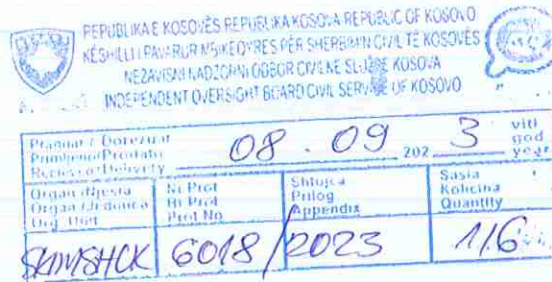 REPUBLIKA E KOSOVËS REPUBLIKA KOSOVA REPUBLIC OF KOSOVO
KËSHILLI I PAVARUR MBIKËQYRËS PËR SHËRBIMIN CIVIL TË KOSOVËS
NEZAVISNI NADZORNI ODBOR CIVILNE SLUŽBE KOSOVA
INDEPENDENT OVERSIGHT BOARD CIVIL SERVICE OF KOSOVO
Pranuar / Dorëzuar
Primljeno/Predato
Receives/Delivery
08 . 09 202 3 viti
god
year
Organ./Njësia
Organ./Jedinica
Org. Unit
Nr. Prot
Br. Prot
Prot. No
Shtojca
Prilog
Appendix
Sasia
Kolicina
Quantity
6018/2023 116